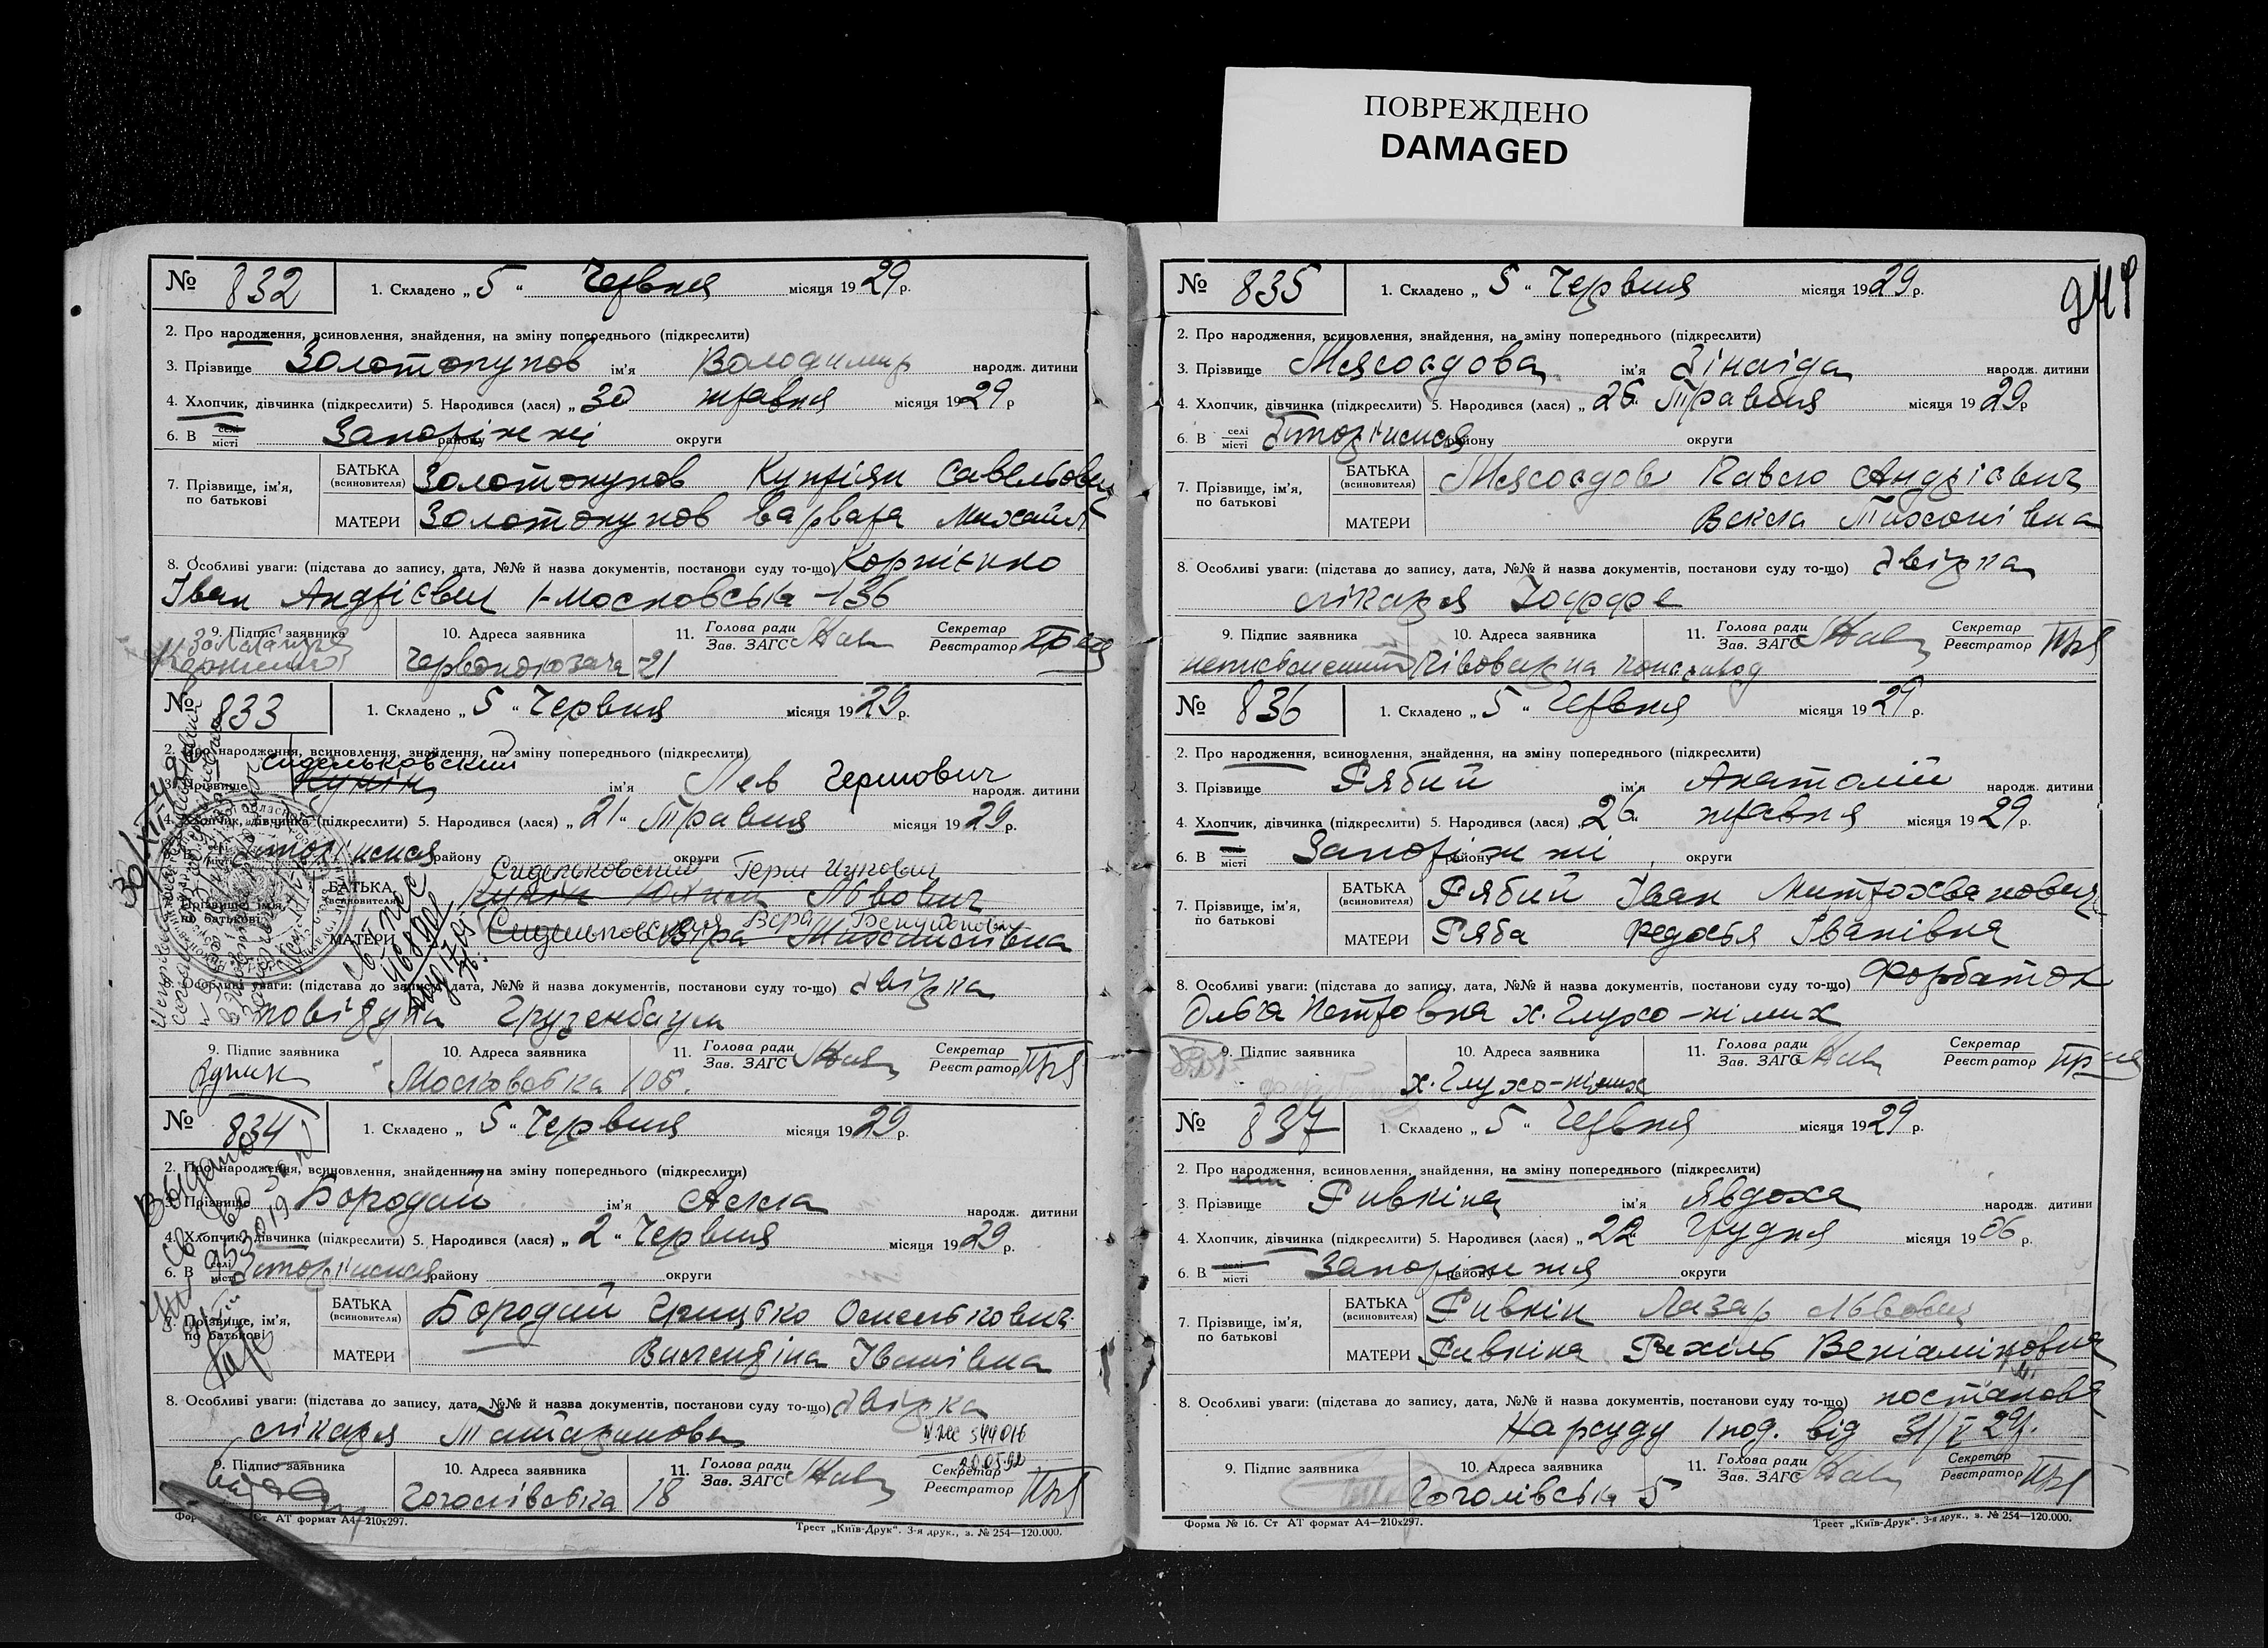 ПОВРЕЖДЕНО
DAMAGED
№ 832 1. Складено „ 5 “ Червня місяця 1929 р.
2. Про народження, всиновлення, знайдення, на зміну попереднього (підкреслити)
3. Прізвище Золотопупов ім'я Володимир народж. дитини
4. Хлопчик, дівчинка (підкреслити) 5. Народився (лася) „ 30 травня місяця 1929 р
6. В селі місті Запоріжжі району округи
7. Прізвище, ім'я, по батькові
БАТЬКА (всиновителя) Золотопупов Купріян Савельович
МАТЕРИ Золотопупов Варвара Михайл
8. Особливі уваги: (підстава до запису, дата, №№ й назва документів, постанови суду то-що) Корнієнко
Іван Андрієвич 1-Московська -136
9. Підпис заявника 10. Адреса заявника 11. Голова ради Зав. ЗАГС Секретар Реєстратор
21
№ 833 1. Складено „ 5 “ Червня місяця 1929 р.
2. Про народження, всиновлення, знайдення, на зміну попереднього (підкреслити)
Сидельковский
3. Прізвище Кунін ім'я Лев Гершович народж. дитини
4. Хлопчик, дівчинка (підкреслити) 5. Народився (лася) „ 21 “ Травня місяця 1929 р.
району округи
Сидельковский Герш Ицкович
БАТЬКА (всиновителя) Кунін Львович
Сидельковская Вера
МАТЕРИ Віра Михайлівна
8. Особливі уваги: (підстава до запису, дата, №№ й назва документів, постанови суду то-що) довірка
Грузенбаум
9. Підпис заявника 10. Адреса заявника 11. Голова ради Зав. ЗАГС Секретар Реєстратор
Кунин Московська 106.
№ 834 1. Складено „ 5 “ Червня місяця 1929 р.
2. Про народження, всиновлення, знайдення на зміну попереднього (підкреслити)
3. Прізвище Бородай ім'я Алла народж. дитини
4. Хлопчик, дівчинка (підкреслити) 5. Народився (лася) „ 2 “ Червня місяця 1929 р.
6. В селі місті Запоріжжя району округи
7. Прізвище, ім'я, по батькові
БАТЬКА (всиновителя) Бородай Грицько Омелькович
МАТЕРИ Валентіна Іванівна
8. Особливі уваги: (підстава до запису, дата, №№ й назва документів, постанови суду то-що) довірка
лікаря
20.05.92
9. Підпис заявника 10. Адреса заявника 11. Голова ради Зав. ЗАГС Секретар Реєстратор
Гоголівська 18
Ст АТ формат А4—210х297. Трест „Київ-Друк“. 3-я друк., з. № 254—120.000.
№ 835 1. Складено „ 5 “ Червня місяця 1929 р.
2. Про народження, всиновлення, знайдення, на зміну попереднього (підкреслити)
3. Прізвище Мясоєдова ім'я Зінаїда народж. дитини
4. Хлопчик, дівчинка (підкреслити) 5. Народився (лася) „ 26 “ Травня місяця 1929 р
6. В селі місті Запоріжжя району округи
7. Прізвище, ім'я, по батькові
БАТЬКА (всиновителя) Мясоєдов Павло Андрієвич
МАТЕРИ Векла Тихонівна
8. Особливі уваги: (підстава до запису, дата, №№ й назва документів, постанови суду то-що) довірка
лікаря Іоффе
9. Підпис заявника 10. Адреса заявника 11. Голова ради Зав. ЗАГС Секретар Реєстратор
неписьменний
№ 836 1. Складено „ 5 “ Червня місяця 1929 р.
2. Про народження, всиновлення, знайдення, на зміну попереднього (підкреслити)
3. Прізвище Рябий ім'я Анатолій народж. дитини
4. Хлопчик, дівчинка (підкреслити) 5. Народився (лася) „ 26 “ травня місяця 1929 р.
6. В селі місті Запоріжжі району округи
7. Прізвище, ім'я, по батькові
БАТЬКА (всиновителя) Рябий Іван Митрохванович
МАТЕРИ Ряба Федосья Іванівна
8. Особливі уваги: (підстава до запису, дата, №№ й назва документів, постанови суду то-що) Форбатох
Ольга Петровна х. Глухо-німих
9. Підпис заявника 10. Адреса заявника 11. Голова ради Зав. ЗАГС Секретар Реєстратор
х. Глухо-німих
№ 837 1. Складено „ 5 “ Червня місяця 1929 р.
2. Про народження, всиновлення, знайдення, на зміну попереднього (підкреслити)
3. Прізвище Ривкіна ім'я Явдоха народж. дитини
4. Хлопчик, дівчинка (підкреслити) 5. Народився (лася) „ 22 “ Грудня місяця 1906 р.
6. В селі місті Запоріжжя району округи
7. Прізвище, ім'я, по батькові
БАТЬКА (всиновителя) Ривкін Лазар Львович
МАТЕРИ Ривкіна Рахіль Веніаміновна
8. Особливі уваги: (підстава до запису, дата, №№ й назва документів, постанови суду то-що) постанова
Нарсуду 1 под. від 31/V 29р.
9. Підпис заявника 10. Адреса заявника 11. Голова ради Зав. ЗАГС Секретар Реєстратор
Гоголівська 5
Форма № 16. Ст АТ формат А4—210х297. Трест „Київ-Друк“. 3-я друк., з. № 254—120.000.